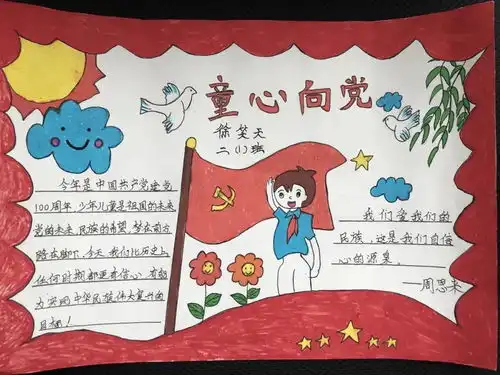 童心向党
徐笑天
二(1)班
今年是中国共产党建党
100周年,少年儿童是祖国的未来
党的未来 民族的希望,梦在前方
路在脚下,今天,我们比历史上
任何时期都更有信心,有能力
为实现中华民族伟大复兴的
目标!
我们爱我们的
民族,这是我们自信
心的源泉。
—周恩来